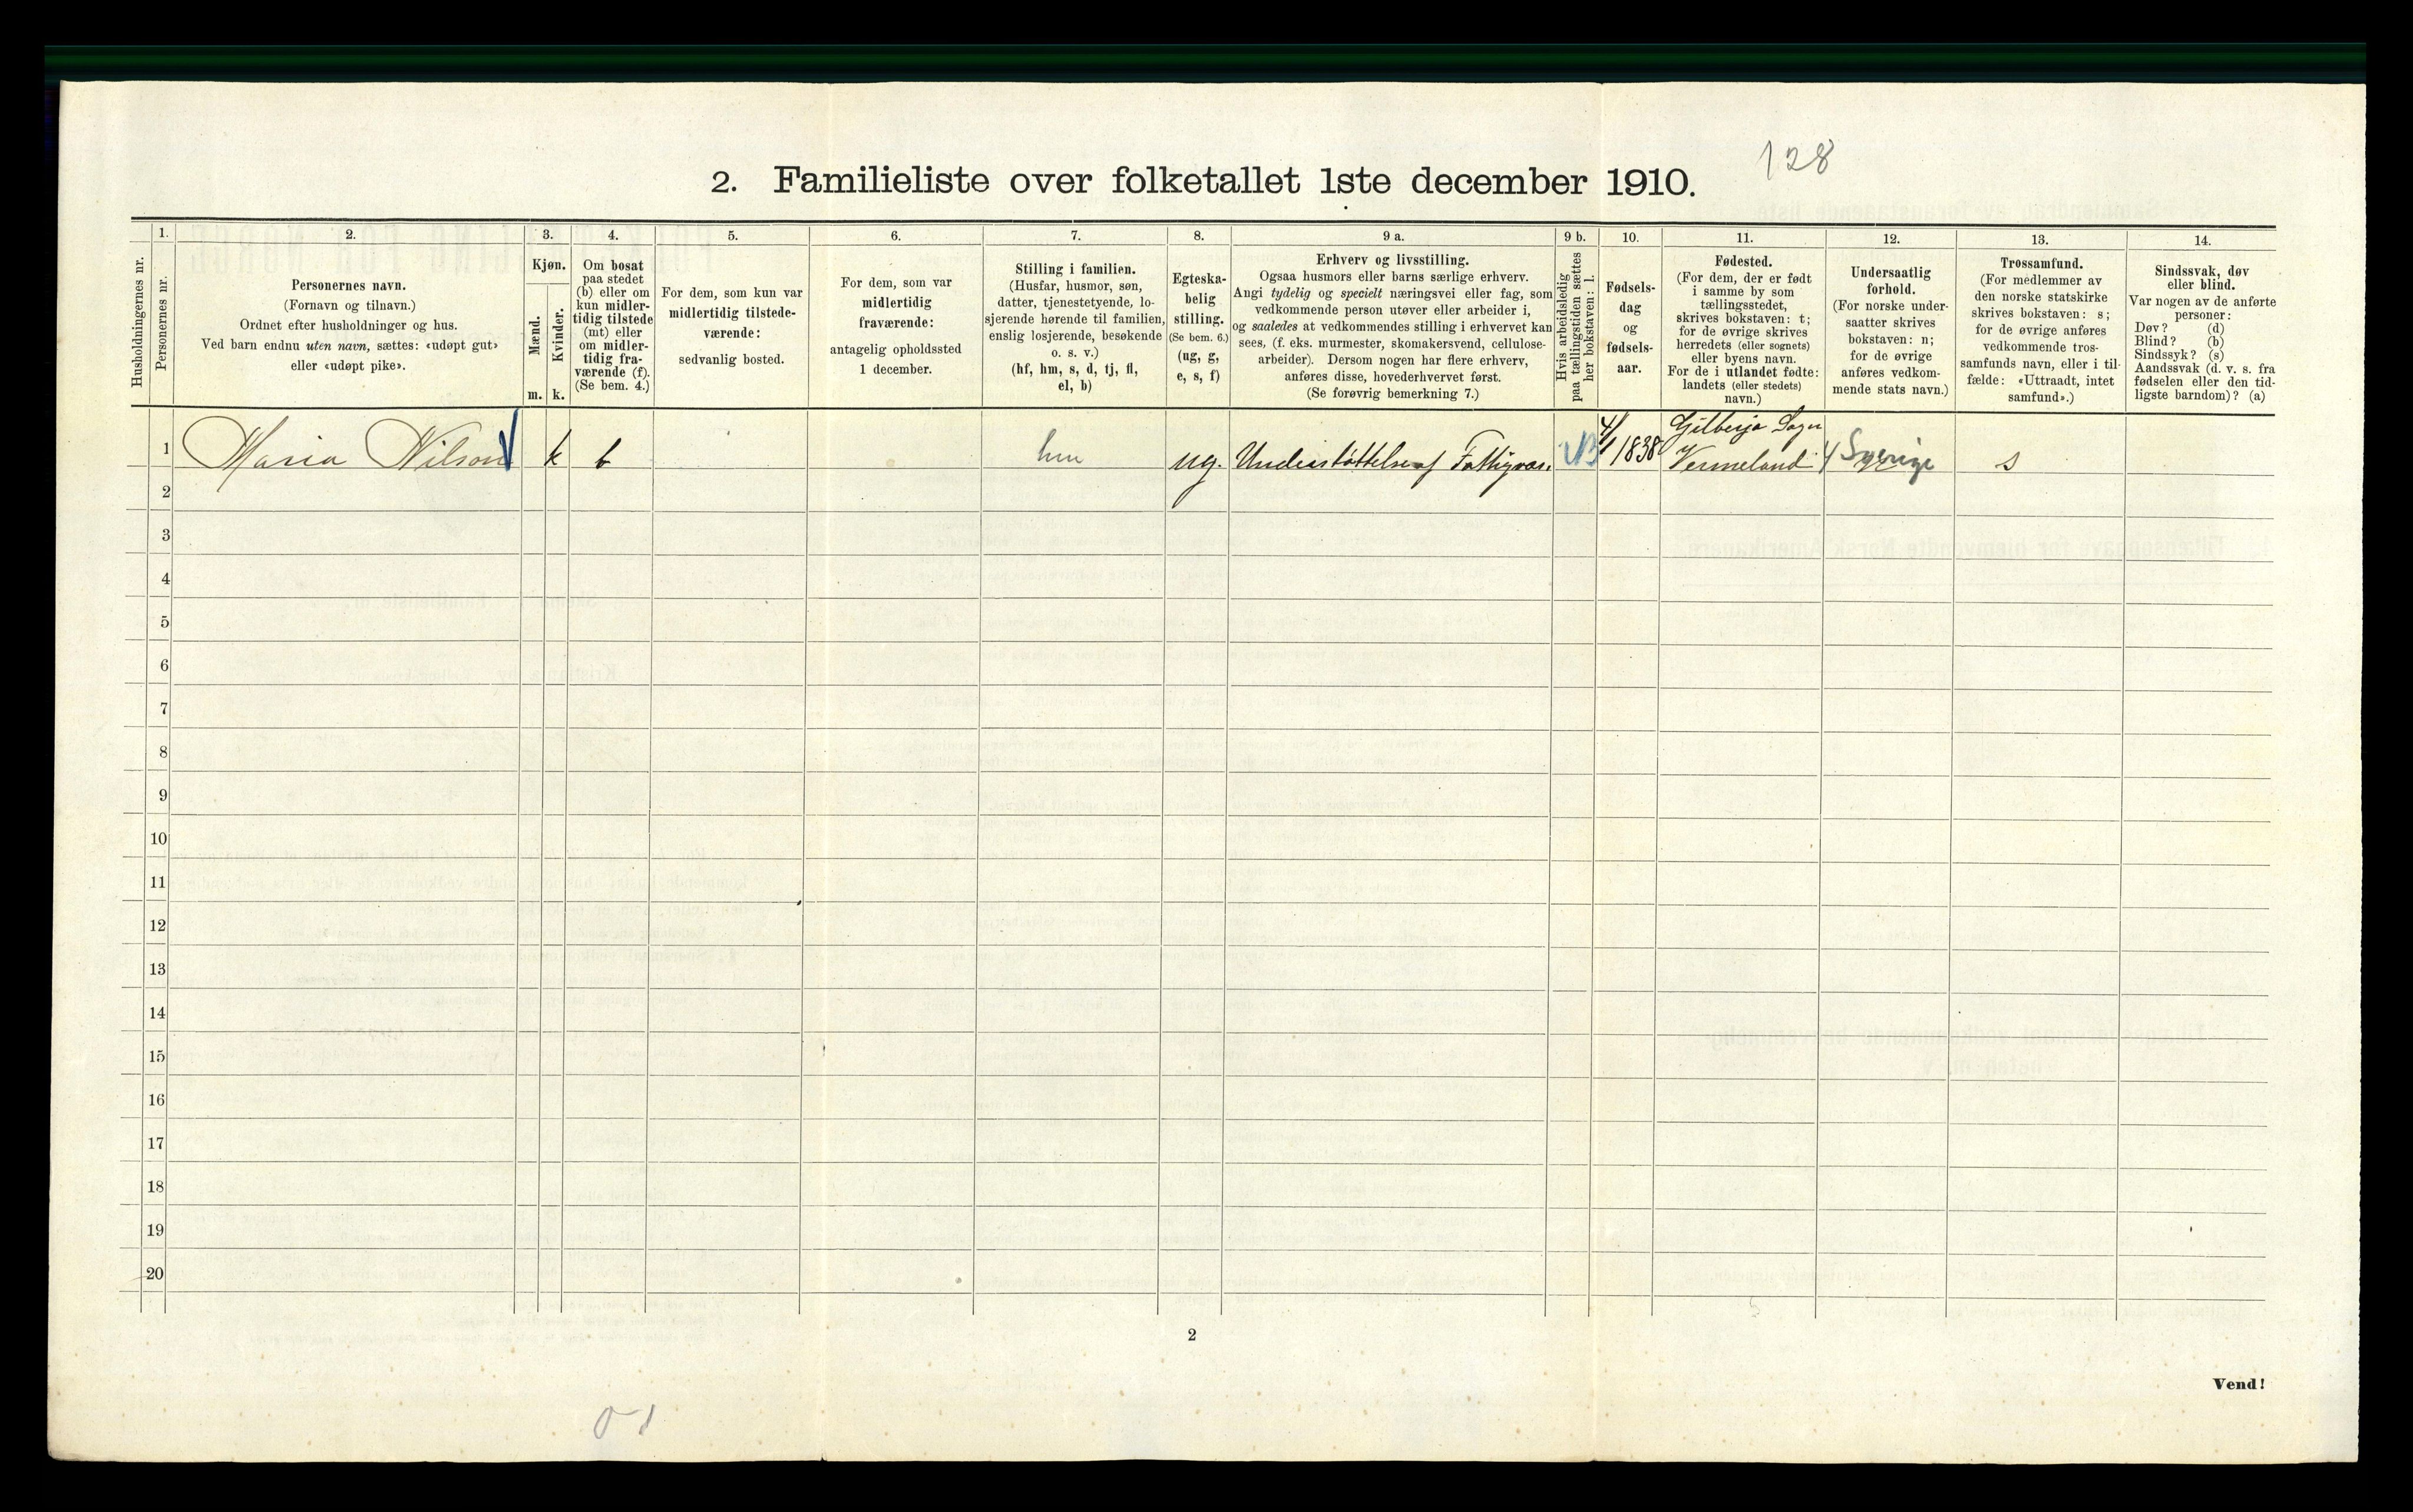 128
2. Familieliste over folketallet 1ste december 1910.
Husholdningernes nr.
1.
Personernes nr.
2.
Personernes navn.
(Fornavn og tilnavn.)
Ordnet efter husholdninger og hus.
Ved barn endnu uten navn, sættes: «udøpt gut»
eller «udøpt pike».
3.
Kjøn.
Mænd.
Kvinder.
m. k.
4.
Om bosat
paa stedet
(b) eller om
kun midler-
tidig tilstede
(mt) eller
om midler-
tidig fra-
værende (f).
(Se bem. 4.)
5.
For dem, som kun var
midlertidig tilstede-
værende:
sedvanlig bosted.
6.
For dem, som var
midlertidig
fraværende:
antagelig opholdssted
1 december.
7.
Stilling i familien.
(Husfar, husmor, søn,
datter, tjenestetyende, lo-
sjerende hørende til familien,
enslig losjerende, besøkende
o. s. v.)
(hf, hm, s, d, tj, fl,
el, b)
8.
Egteska-
belig
stilling.
(Se bem. 6.)
(ug, g,
e, s, f)
9 a.
Erhverv og livsstilling.
Ogsaa husmors eller barns særlige erhverv.
Angi tydelig og specielt næringsvei eller fag, som
vedkommende person utøver eller arbeider i,
og saaledes at vedkommendes stilling i erhvervet kan
sees, (f. eks. murmester, skomakersvend, cellulose-
arbeider). Dersom nogen har flere erhverv,
anføres disse, hovederhvervet først.
(Se forøvrig bemerkning 7.)
9 b.
Hvis arbeidsledig
paa tællingstiden sættes
her bokstaven: l.
10.
Fødsels-
dag
og
fødsels-
aar.
11.
Fødested.
(For dem, der er født
i samme by som
tællingsstedet,
skrives bokstaven: t;
for de øvrige skrives
herredets (eller sognets)
eller byens navn.
For de i utlandet fødte:
landets (eller stedets)
navn.)
12.
Undersaatlig
forhold.
(For norske under-
saatter skrives
bokstaven: n;
for de øvrige
anføres vedkom-
mende stats navn.)
13.
Trossamfund.
(For medlemmer av
den norske statskirke
skrives bokstaven: s;
for de øvrige anføres
vedkommende tros-
samfunds navn, eller i til-
fælde: «Uttraadt, intet
samfund».)
14.
Sindssvak, døv
eller blind.
Var nogen av de anførte
personer:
Døv? (d)
Blind? (b)
Sindssyk? (s)
Aandssvak (d. v. s. fra
fødselen eller den tid-
ligste barndom)? (a)
1 Maria Nilson k b hm ug. Understøttelse af Fattigvæs. 4/1 1838 Gilberja Sogn
Vermeland Sverige s
2
3
4
5
6
7
8
9
10
11
12
13
14
15
16
17
18
19
20
2
Vend!